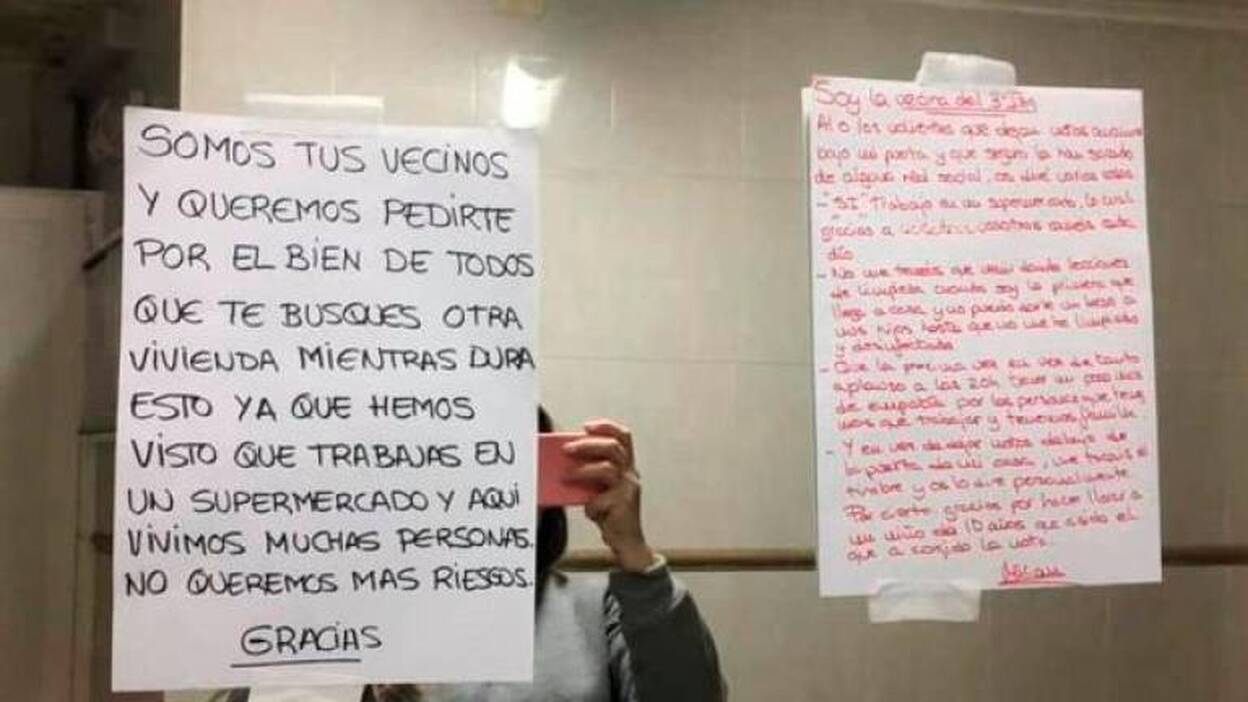 SOMOS TUS VECINOS
Y QUEREMOS PEDIRTE
POR EL BIEN DE TODOS
QUE TE BUSQUES OTRA
VIVIENDA MIENTRAS DURA
ESTO YA QUE HEMOS
VISTO QUE TRABAJAS EN
UN SUPERMERCADO Y AQUI
VIVIMOS MUCHAS PERSONAS.
NO QUEREMOS MAS RIESGOS.
GRACIAS
Soy la vecina del
Al o los valientes que dejan notas
bajo mi puerta y que seguro la has sacado
de alguna red social, os diré varias cosas
- "SI" Trabajo en un supermercado, lo cual
gracias a vosotros cada
día
- No me tenéis que venir dando lecciones
de limpieza cuando soy la primera que
llega a casa y no puedo darle un beso a
mis hijos hasta que no me he limpiado
y desinfectado
- Que la próxima vez en vez de tanto
aplauso a las 20h tener un poco más
de empatía por las personas que tene
mos que trabajar y tenemos familia
- Y en vez de dejar notas debajo de
la puerta de mi casa, me toquis el
timbre y os lo dire personalmente
Por cierto gracias por hacer llorar a
un niño de 10 años que ha sido el
que a cogido la nota.